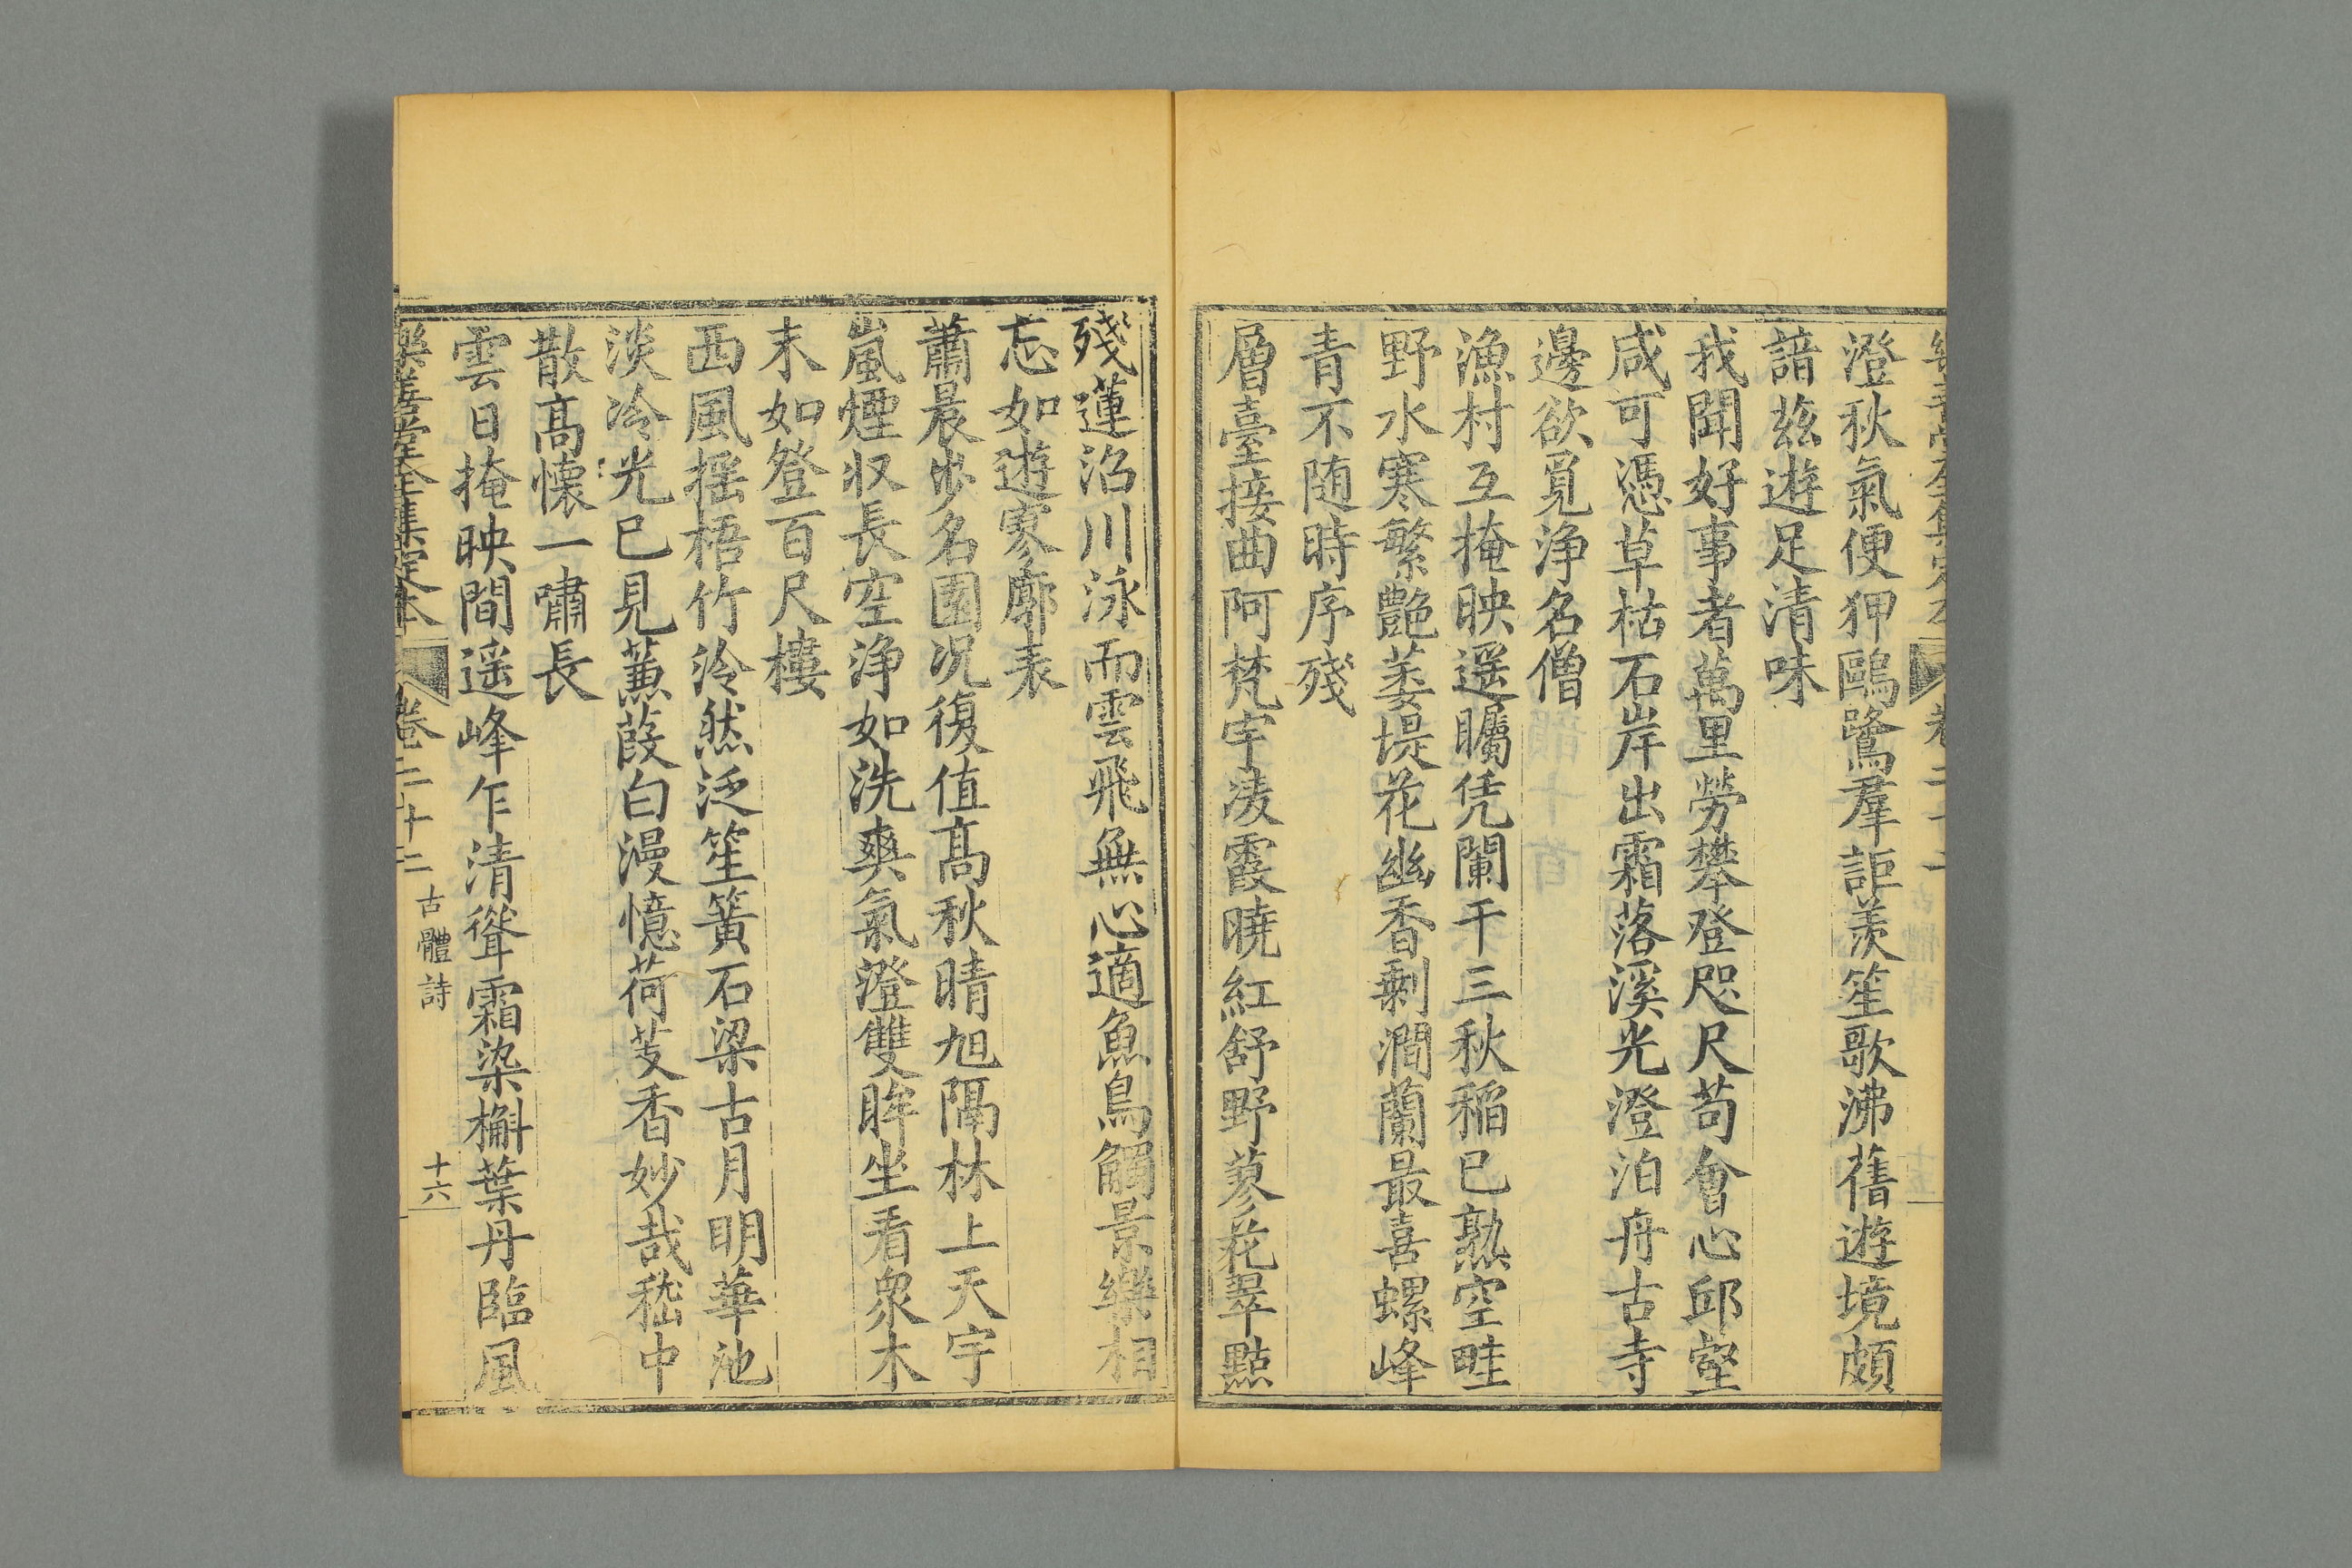 澄秋氣便狎鷗鷺羣詎羨笙歌沸舊遊境頗
諳茲遊足清味
我聞好事者萬里勞攀登咫尺苟會心邱壑
咸可憑草枯石岸出霜落溪光澄泊舟古寺
邊欲覓淨名僧
漁村互掩映遥矚凭闌干三秋稲已熟空畦
野水寒繁艶萎堤花幽香剩澗蘭最喜螺峰
青不随時序殘
層臺接曲阿梵宇凌霞曉紅舒野蓼花翠點
殘蓮沼川泳而雲飛無心適魚鳥觸景樂相
忘如遊寥廓表
蕭晨步名園况復值髙秋晴旭隔林上天宇
嵐煙収長空淨如洗爽氣澄雙眸坐看衆木
末如登百尺樓
西風摇梧竹泠然泛笙簧石梁古月明華池
淡冷光已見蒹葭白漫憶荷芰香妙哉嵇中
散髙懷一嘯長
雲日掩映間遥峰乍清聳霜染槲葉丹臨風
樂善堂全集定本 卷二十二 古體詩 十六